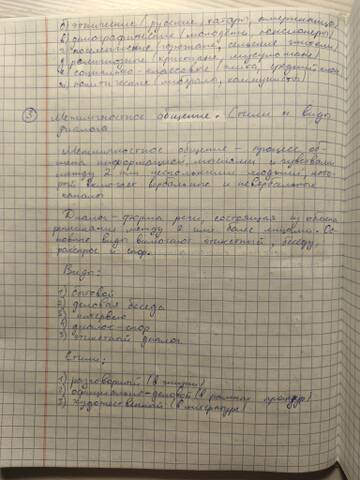 а) этнические (русские, татары, американцы)
б) демографические (молодёжь, пенсионеры)
(горожане, сельские жители)
д) религиозное (христиане, мусульмане)
социально-классовое средний класс)
политические (либералы, коммунисты)
③ Межличностное общение. Стили и виды
диалога
Межличностное общение – процесс, об-
мена информацией, мыслями и чувствами
между 2 или несколькими людьми, кото-
рый включает вербальные и невербальные
каналы
Диалог – форма речи, состоящая из обмена
репликами между 2 или более лицами. Ос-
новные виды включают этикетный, беседу,
расспрос и спор.
Виды:
1) бытовой
2) деловая беседа
3) интервью
4) диалог-спор
5) этикетный диалог
Стили:
1) разговорный (в жизни)
2) официально-деловой (в рамках
3) художественный (в литературе)